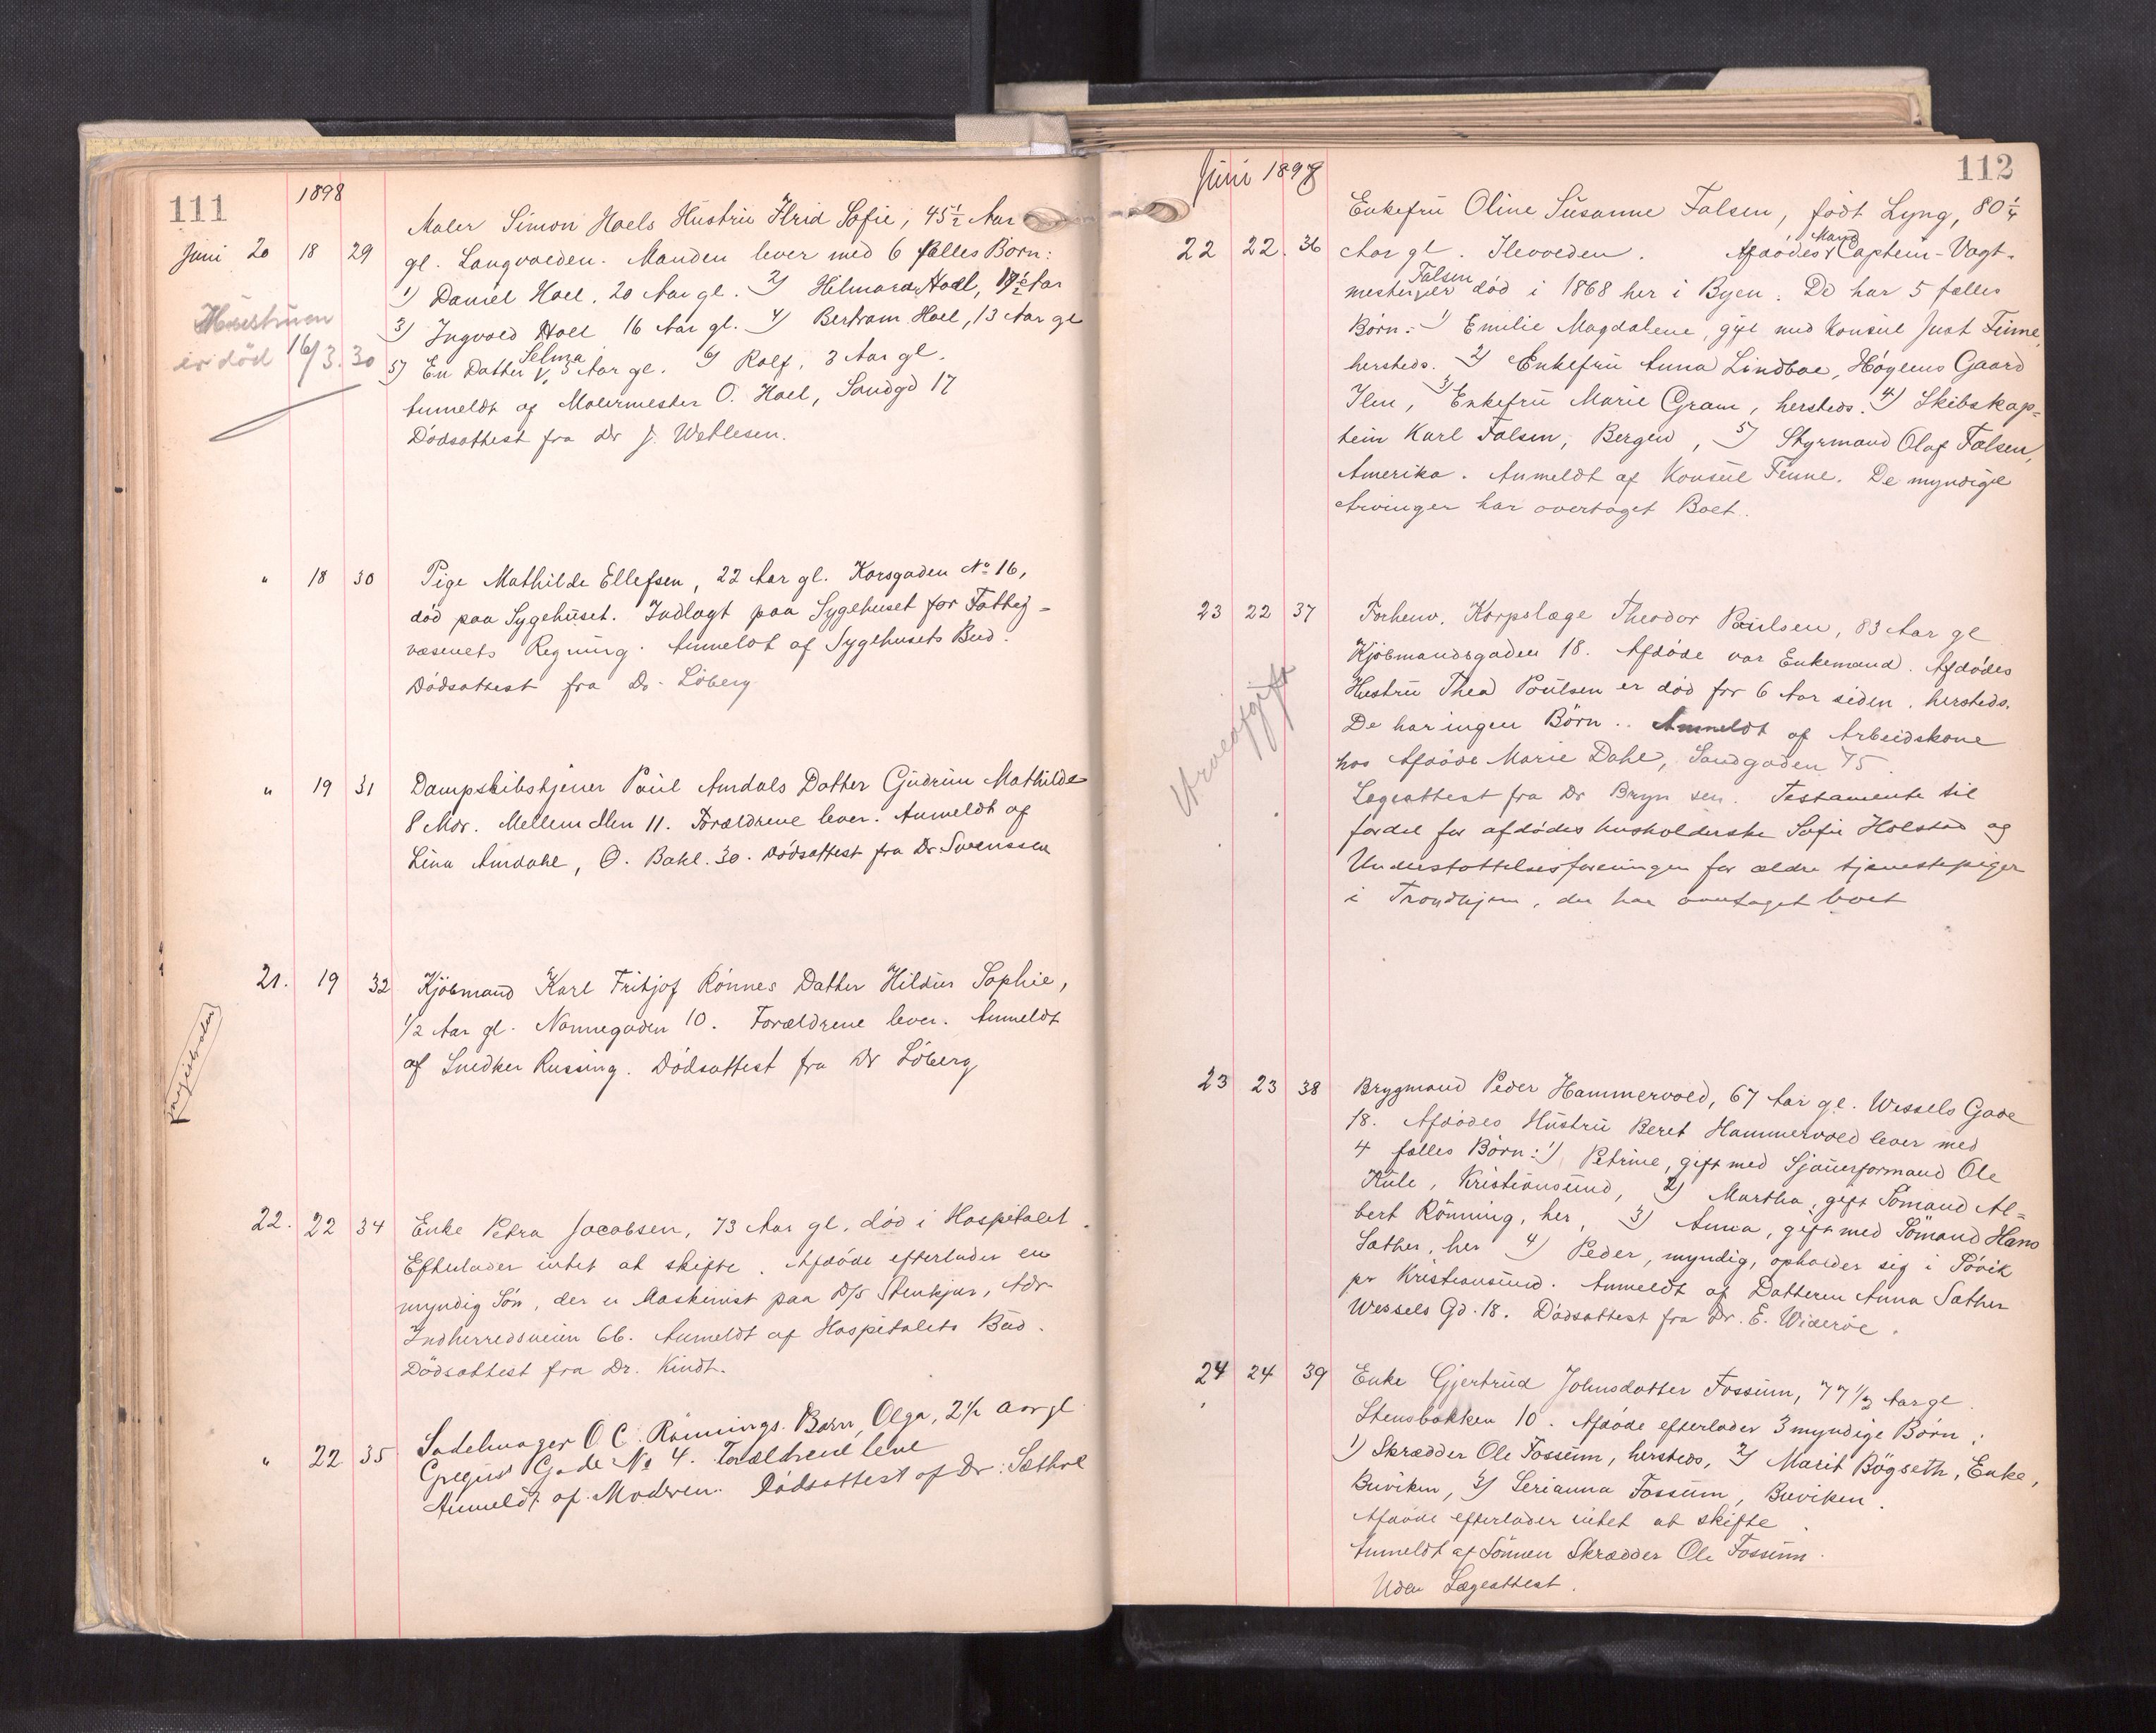 111
1898
Maler Simon Hoels Hustru Hrid Sofie, 45½ Aar
Juni 20 18 29 gl. Langvolden. Manden lever med 6 fælles Børn:
1) Daniel Hoel, 20 Aar gl. 2) Hilmar Hoel, Aar
Hustruen
3) Ingvald Hoel 16 Aar gl. 4) Bertram Hoel, 13 Aar gl
er død 16/3.30
5) En Datter Selma 5 Aar gl. 6) Rolf, 3 Aar gl.
Anmeldt af Malermester O. Hoel, Sandgd 17
Dødsattest fra Dr J. Wetlesen.
" 18 30 Pige Mathilde Ellefsen, 22 Aar gl. Korsgaden No 16,
død paa Sygehuset. Indlagt paa Sygehuset for Fattig-
væsenets Regning. Anmeldt af Sygehusets Bud.
Dødsattest fra Dr. Løberg
" 19 31 Dampskibstjener Paul Amdals Datter Gudrun Mathilde
8 Mdr. Mellem Ilen 11. Forældrene lever. Anmeldt af
Lina Amdahl, O. Bakl. 30. Dødsattest fra Dr. Svenssen
21. 19 32 Kjøbmand Karl Fritjof Rønnes Datter Hildur Sophie,
1/2 Aar gl. Nonnegaden 10. Forældrene lever. Anmeldt
af Snedker Russing. Dødsattest fra Dr Løberg
22. 22 34 Enke Petra Jacobsen, 73 Aar gl. død i Hospitalet.
Efterlader intet at skifte. Afdøde efterlader en
myndig Søn, der er Maskinist paa D/S Stenkjær, Adr
Indherredsveien 66. Anmeldt af Hospitalets Bud.
Dødsattest fra Dr. Kindt.
" 22 35 Sadelmager O C. Rønnings Barn, Olga, 2½ Aar gl
Gregus Gade No 4. Forældrene leve
Anmeldt af Moderen. Dødsattest af Dr: Sæthre
112
Juni 1898
Enkefru Oline Susanne Falsen, født Lyng, 80¼
22 22. 36 Aar gl. Ilevolden. Afdødes Mand Captein-Vagt-
mester Falsen død i 1868 her i Byen. De har 5 fælles
Børn: 1) Emilie Magdalene, gift med Konsul Just Finne,
hersteds. 2) Enkefru Anna Lindboe, Høyems Gaard
Ilen, 3) Enkefru Marie Gram, hersteds. 4) Skibskap-
tein Karl Falsen, Bergen, 5) Styrmand Olaf Falsen,
Amerika. Anmeldt af Konsul Finne. De myndige
Arvinger har overtaget Boet.
23 22 37 Forhenv. Korpslæge Theodor Poulsen, 83 Aar gl
Kjøbmandsgaden 18. Afdøde var Enkemand. Afdødes
Arveafgift
Hustru Thea Poulsen er død for 6 Aar siden, hersteds.
De har ingen Børn. Anmeldt af Arbeidskone
hos Afdøde Marie Dahl, Sandgaden 75.
Lægeattest fra Dr Bryn sen. Testamente til
fordel for afdødes husholderske Sofie Holstad og
Understøttelsesforeningen for ældre tjenestepiger
i Trondhjem, der har overtaget boet
23 23 38 Brygmand Peder Hammervold, 67 Aar gl. Wessels Gade
18. Afdødes Hustru Beret Hammervold lever med
4 fælles Børn: 1) Petrine, gift med Sjauerformand Ole
Kule, Kristiansund, 2) Martha, gift Sømand Al-
bert Rønning, her, 3) Anna, gift med Sømand Hans
Sæther, her 4) Peder, myndig, opholder sig i
pr Kristiansund. Anmeldt af Datteren Anna Sæther
Wessels Gd. 18. Dødsattest fra Dr. E. Widerøe.
24 24 39 Enke Gjertrud Johnsdatter Fossum, 77 1/2 Aar gl.
Stensbakken 10. Afdøde efterlader 3 myndige Børn:
1) Skrædder Ole Fossum, hersteds, 2) Marit Bøgseth, Enke,
Buviken, 3) Serianna Fossum, Buviken.
Afdøde efterlader intet at skifte.
Anmeldt af Sønnen Skrædder Ole Fossum.
Uden Lægeattest.